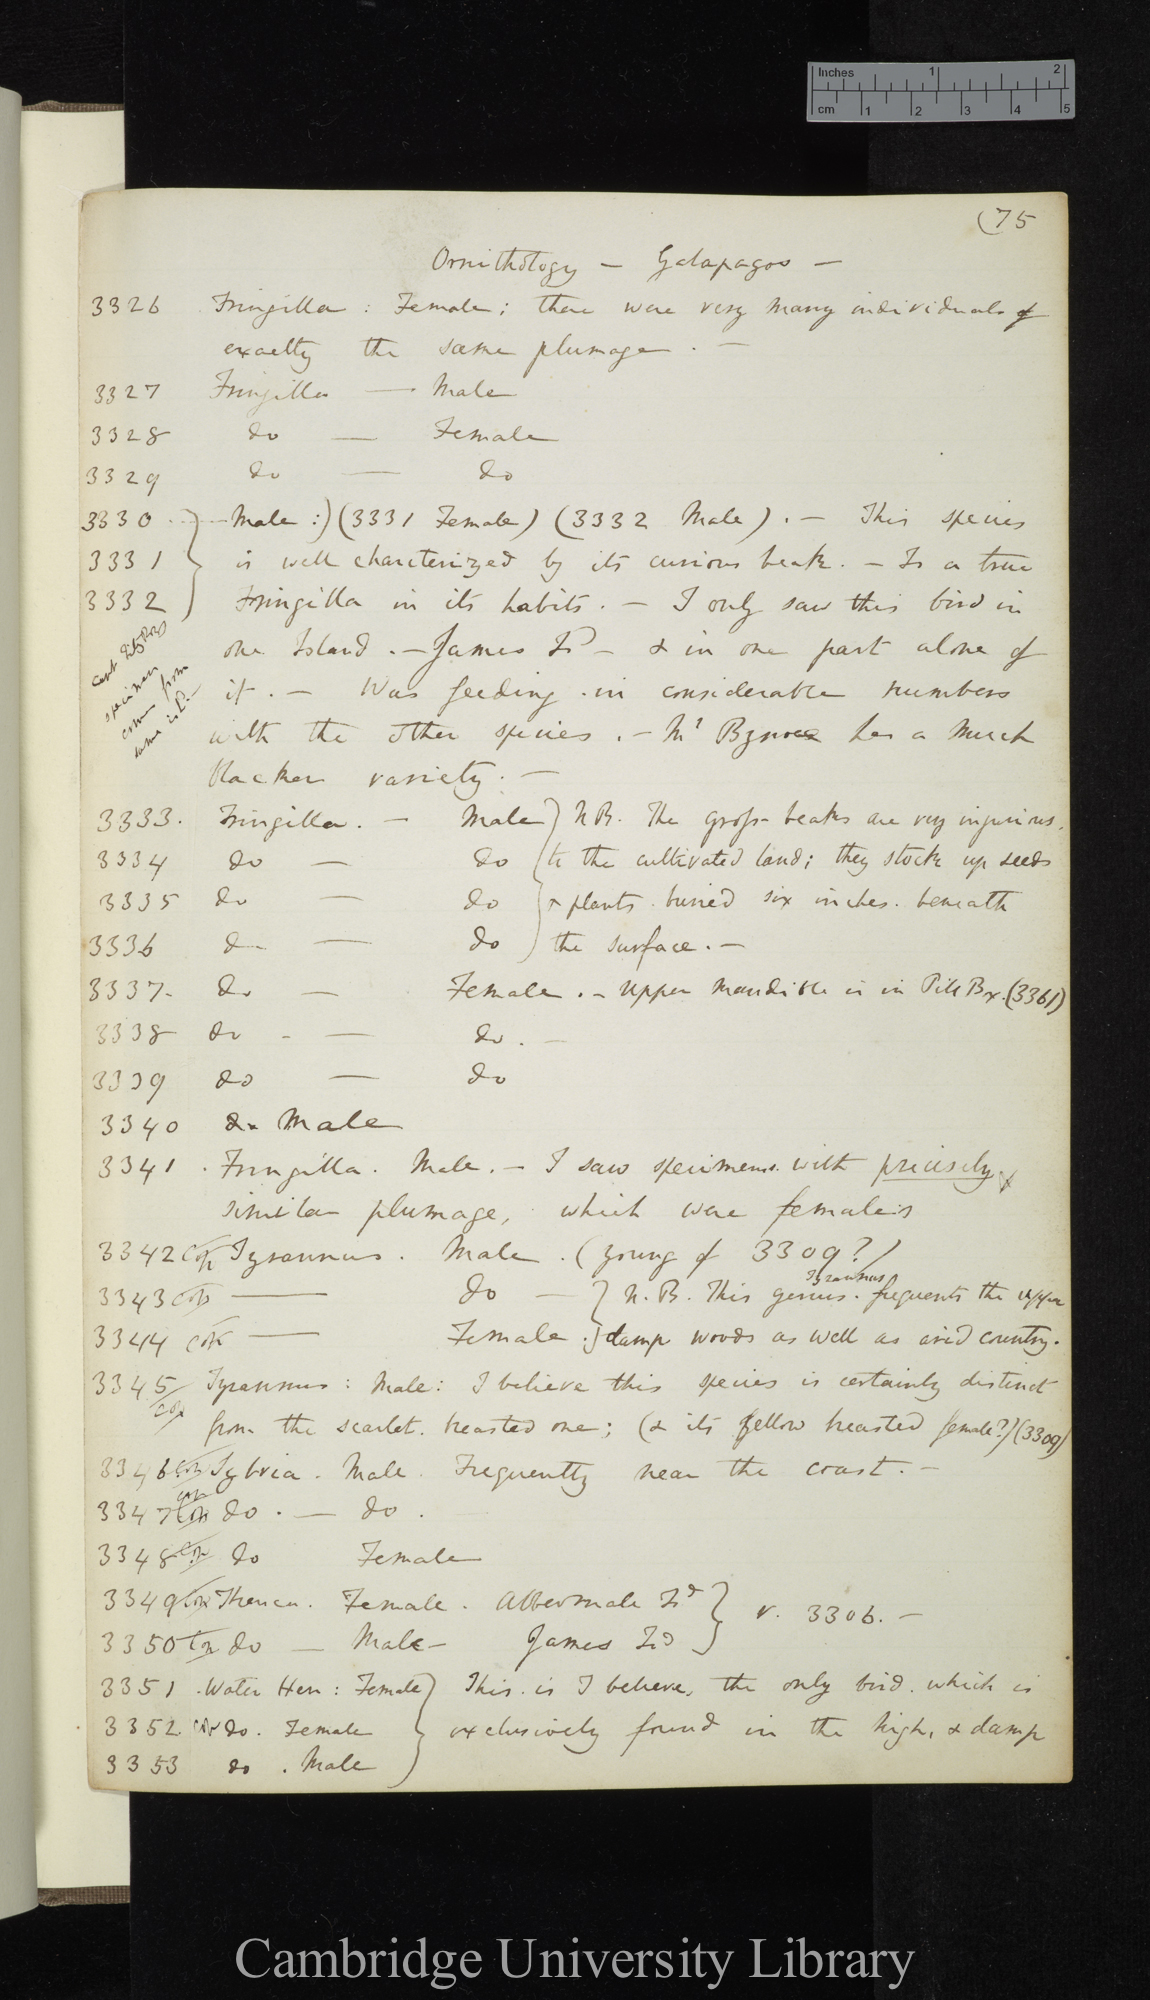 Inches 1 2
cm 1 2 3 4 5
(75
Ornithology — Galapagos —
3326 Fringilla : Female ; there were very many individuals of
exactly the same plumage . —
3327 Fringilla — Male
3328 do — Female
3329 do — do
3330 Male :) (3331 Female) (3332 Male) . — This species
3331 is well charcterized by its curious beak. — Is a true
3332 Fringilla in its habits. — I only saw this bird in
one Island . — James Isd — & in one part alone of
it . — Was feeding in considerable numbers
with the other species . — Mr Bynoe has a much
blacker variety . —
Capt FitzRoy
specimen
come from
same isd. —
3333. Fringilla . — Male } NB. The gross-beaks are very injurious
3334 do — do to the cultivated land; they stock up seeds
3335 do — do & plants buried six inches beneath
3336 do — do the surface. —
3337. do — Female . — Upper Mandible is in Pill Box. (3361)
3338 do . — do . —
3339 do — do
3340 do Male
3341 . Fringilla . Male. — I saw specimens with precisely
similar plumage, which were females
3342 Cop Tyrannus . Male . (young of 3309?)
3343 Cop — do — } N.B. This genus Tyrannus frequents the upper
3344 Cop — Female . } damp woods as well as arid country.
3345 Cop Tyrannus : Male : I believe this species is certainly distinct
from the scarlet breasted one; (& its yellow breasted female?) (3309)
3346 Cop Sylvia . Male . Frequently near the coast. —
3347 Cop do . — do .
3348 Cop do Female
3349 Cop Thenca . Female . Albermale Isd } V. 3306. —
3350 Cop do — Male — James Isd
3351 . Water Hen : Female } This is I believe, the only bird which is
3352 Cop do . Female exclusively found in the high, & damp
3353 do . Male
Cambridge University Library